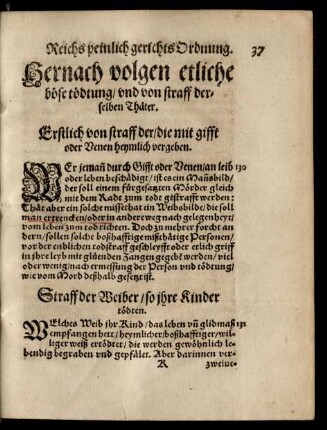 Reichs peinlich gerichts Ordnung. 37
Hernach volgen etliche
böse tödtung/ vnd von straff der-
selben Thäter.
Erstlich von straff der/ die mit gifft
oder Venen heymlich vergeben.
WEr jemañ durch Gifft oder Venen/ an leib 130
oder leben beschädigt/ ist es ein Mañsbild/
der soll einem fürgesatzten Mörder gleich
mit dem Radt zum todt gestrafft werden:
Thät aber ein solche missethat ein Weibsbild/ die soll
man ertrencken/ oder in ander weg nach gelegenheyt/
vom leben zum tod richten. Doch zu mehrer forcht an
dern/ sollen solche boßhafftige mißthätige Personen/
vor der endlichen todstraff geschleyfft oder etlich griff
in jhre leyb mit glüenden Zangen gegebẽ werden/ viel
oder wenig/ nach ermessung der Person vnd tödtung/
wie vom Mord deßhalb gesetzt ist.
Straff der Weiber/ so jhre Kinder
tödten.
WElches Weib jhr Kind/ das leben vñ glidmaß 131
empfangen hett/ heymlicher/ boßhafftiger/ wil-
liger weiß ertödtet/ die werden gewöhnlich le-
bendig begraben vnd gepfälet. Aber darinnen ver-
K zweiue-